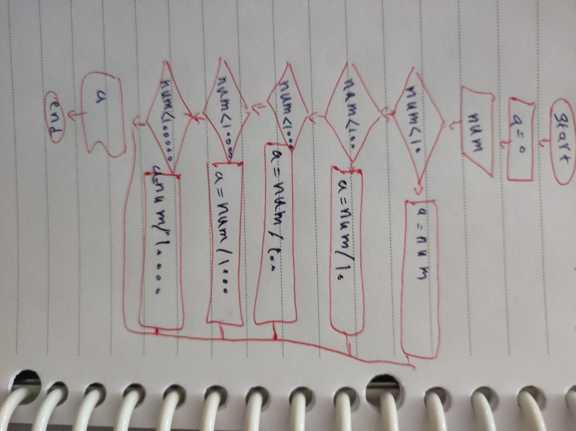 start
a = 0
num
num<10
a = num
num<100
a = num/10
num<1000
a = num/100
num<10000
a = num/1000
num<100000
a=num/10000
a
end